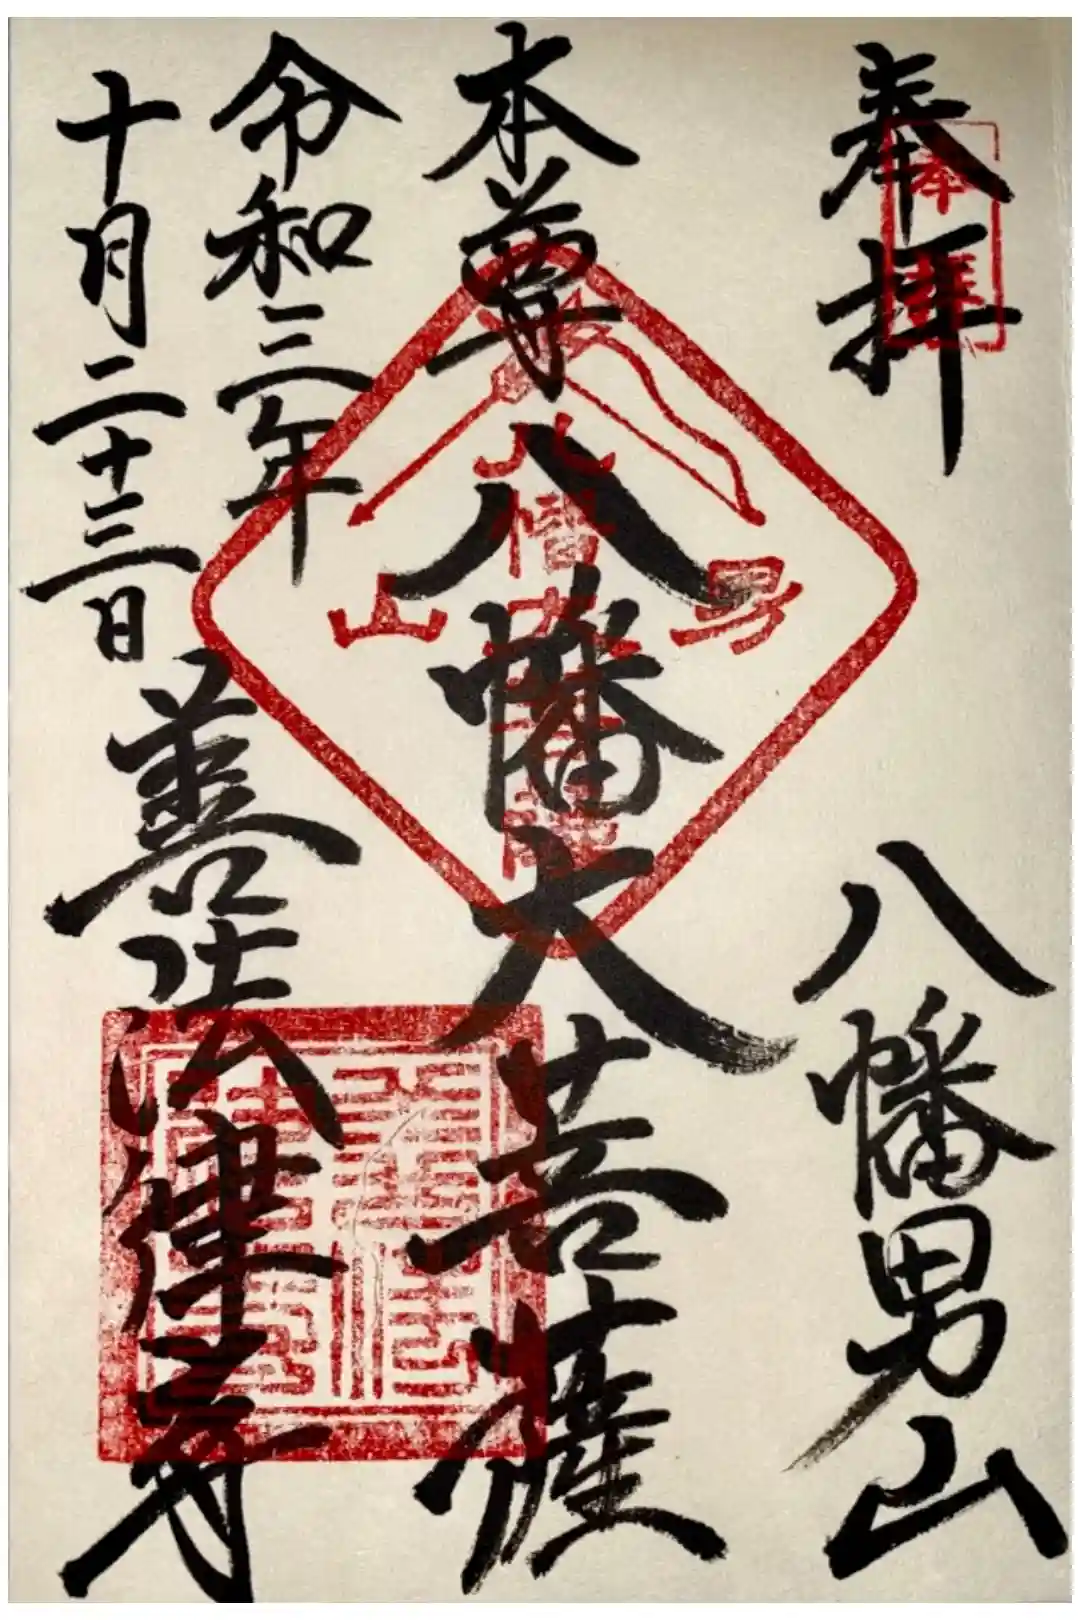 奉拝
奉拝
八幡男山
本尊八幡大菩薩
八幡大菩薩
男山
令和三年
十月二十三日
善法律寺